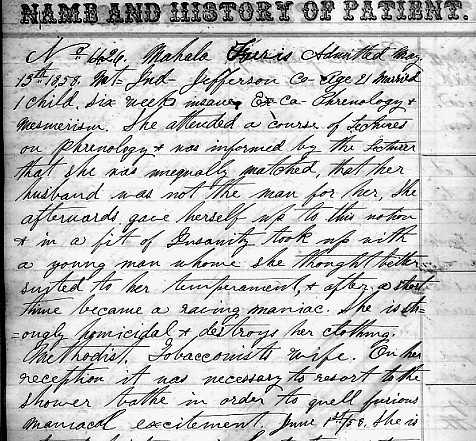 NAME AND HISTORY OF PATIENT.
No 626. Mahala Faris Admitted May
15th 1858. Nt- Ind- Jefferson Co- Age 21 Married
1 child. Six weeks insane. Ex ca- Phrenology &
Mesmerism. She attended a course of Lectures
on Phrenology & was informed by the Lecturer
that she was unequally matched, that her
husband was not the man for her, She
afterwards gave herself up to this notion
& in a fit of Insanity took up with
a young man whome she thought better
suited to her temperament, & after a short
time became a raving maniac. She is str-
-ongly homicidal & destroys her clothing.
Methodist. Tobacconists wife. On her
reception it was necessary to resort to the
shower bathe in order to quell furious
maniacal excitement. June 1st /58, She is